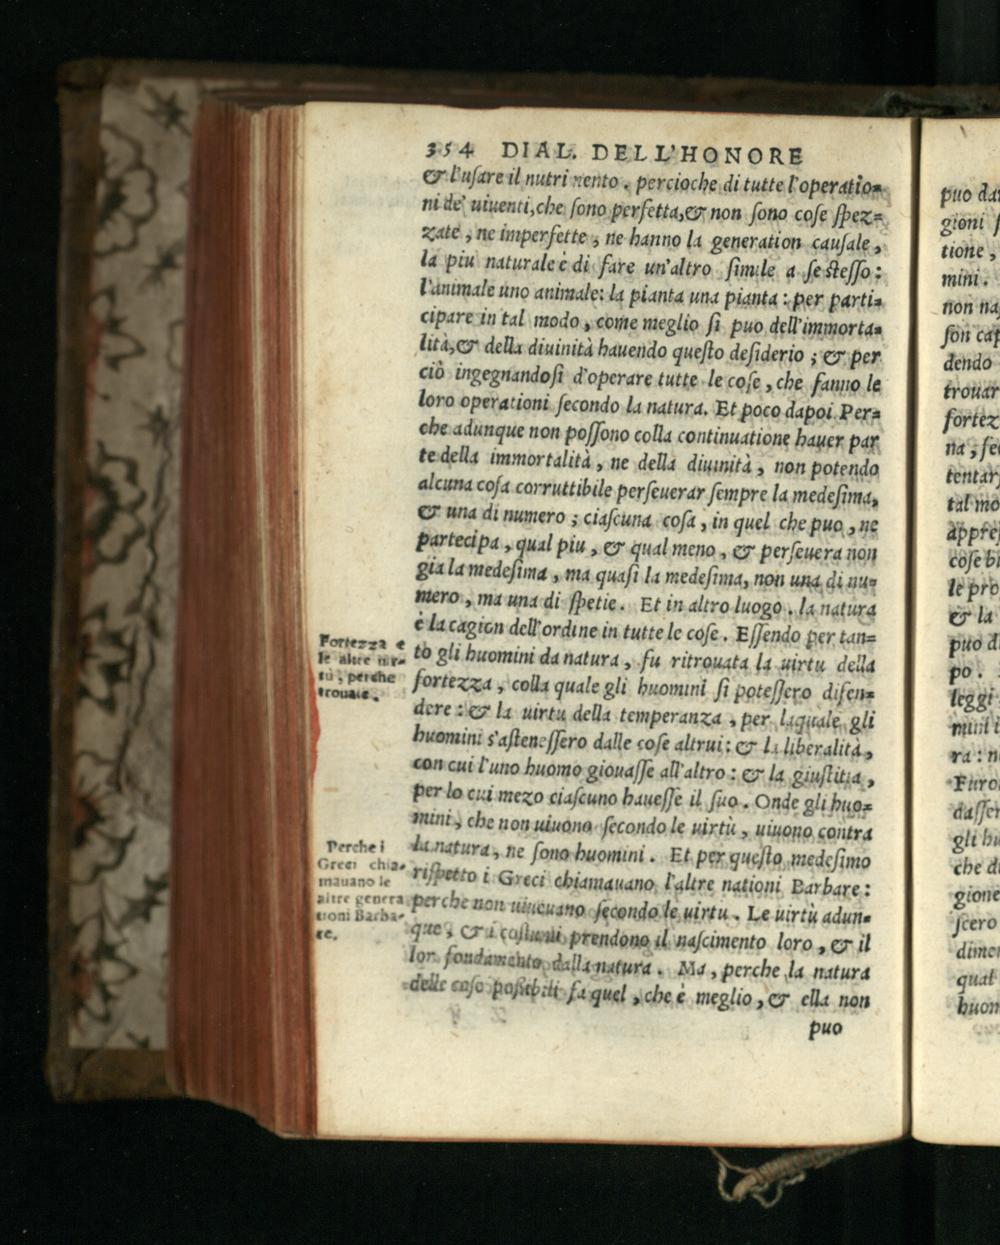 354 DIAL. DELL'HONORE
& l'uſare il nutrimento. percioche di tutte l'operatio=
ni de' uiuenti, che ſono perfetta, & non ſono coſe ſpez=
zate, ne imperfette, ne hanno la generation cauſale,
la piu naturale è di fare un'altro ſimile a ſe steſſo:
l'animale uno animale: la pianta una pianta: per parti=
cipare in tal modo, come meglio ſi puo dell'immorta=
lità, & della diuinità hauendo queſto deſiderio; & per
ciò ingegnandoſi d'operare tutte le coſe, che fanno le
loro operationi ſecondo la natura. Et poco dapoi Per=
che adunque non poſſono colla continuatione hauer par
te della immortalità, ne della diuinità, non potendo
alcuna coſa corruttibile perſeuerar ſempre la medeſima,
& una di numero; ciaſcuna coſa, in quel che puo, ne
partecipa, qual piu, & qual meno, & perſeuera non
gia la medeſima, ma quaſi la medeſima, non una di nu=
mero, ma una di ſpetie. Et in altro luogo. la natura
è la cagion dell'ordine in tutte le coſe. Eſſendo per tan=
to gli huomini da natura, fu ritrouata la uirtu della
fortezza, colla quale gli huomini ſi poteſſero difen=
dere: & la uirtu della temperanza, per laquale gli
huomini s'aſteneſſero dalle coſe altrui: & la liberalità,
con cui l'uno huomo giouaſſe all'altro: & la giuſtitia,
per lo cui mezo ciaſcuno haueſſe il ſuo. Onde gli huo=
mini, che non uiuono ſecondo le uirtù, uiuono contra
la natura, ne ſono huomini. Et per queſto medeſimo
riſpetto i Greci chiamauano l'altre nationi Barbare:
perche non uiueuano ſecondo le uirtu. Le uirtù adun=
que, & i coſtumi prendono il naſcimento loro, & il
lor fondamento dalla natura. Ma, perche la natura
delle coſe poßibili fa quel, che è meglio, & ella non
puo
Fortezza e
le altre uir=
tù, perche
trouate.
Perche i
Greci chia=
mauano le
altre genera
tioni Barba=
re.
puo
gioni
tione,
mini.
non
dendo
na,
tal mo
coſe
le pro
& la
puo
po.
leggi
ra:
gli
che
gione
ſcero
qual